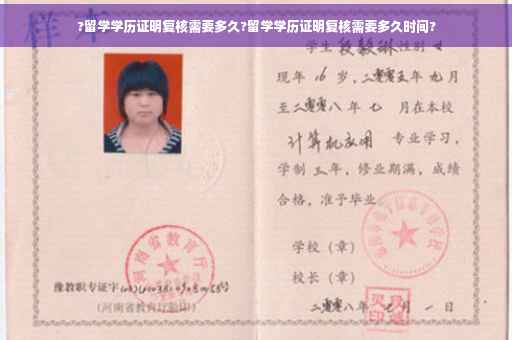 ?留学学历证明复核需要多久?留学学历证明复核需要多久时间?
样本
学生 段毅琳 性别 女
现年 16 岁，二零零五年 九月
至二零零八年 七 月在本校
计算机应用 专业学习，
学制 三年，修业期满，成绩
合格，准予毕业
学校（章）
校长（章）
河南省教育厅
豫教职专证字
（河南省教育厅验印）
二零零八年 七 月 一 日